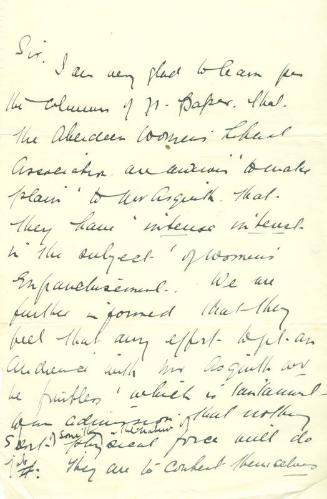 Sir.
I am very glad to learn from
the columns of yr. Paper. that
the Aberdeen Women's Liberal
Association are anxious 'to make
plain' to Mr Asquith that
they have 'intense interest
in the subject' of women's
Enfranchisement. We are
further informed that they
feel that any effort to get an
Audience with Mr Asquith wd
be fruitless' which is tantamount
to an admission that nothing
Short of something in the nature of
physical force will do
it. They are to content themselves